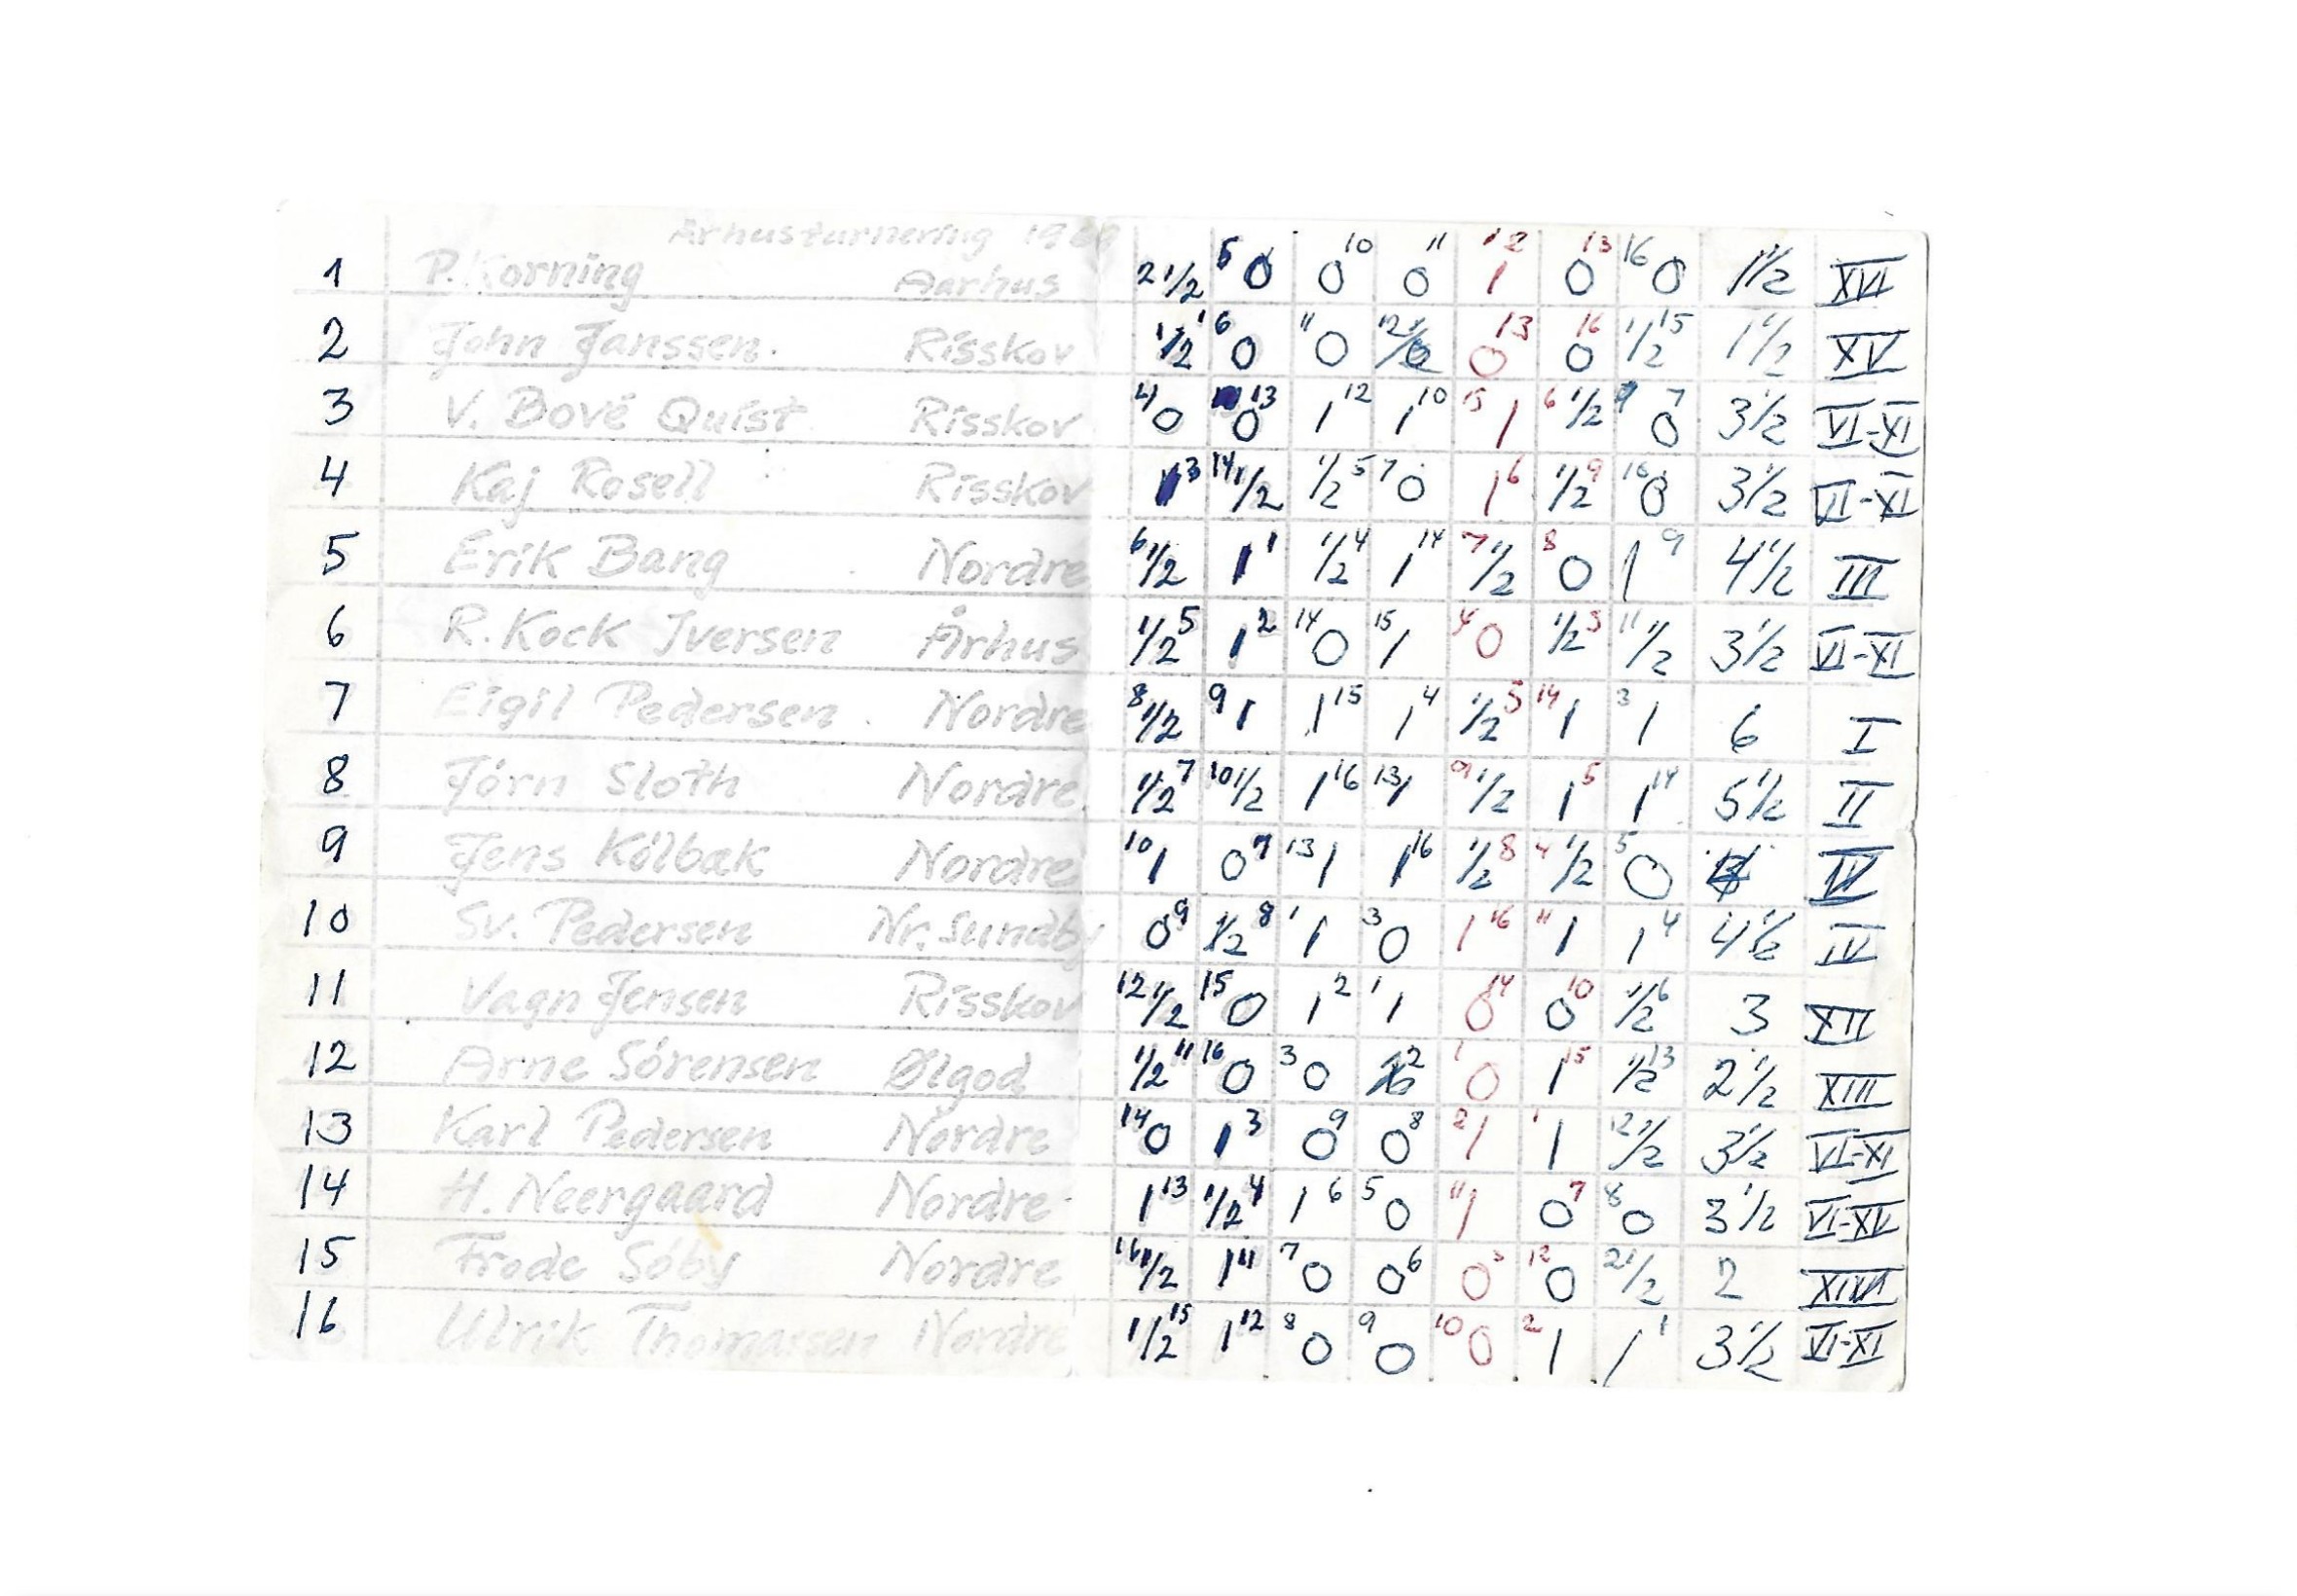 Århusturnering
1 P. Korning Aarhus 2 1/2 5 0 0 10 0 11 1 12 0 13 16 0 1 1/2 XVI
2 John Janssen. Risskov 1/2 1 6 0 11 0 12 0 13 0 16 1/2 15 1 1/2 XV
3 V. Bové Quist Risskov 4 0 13 0 1 12 1 10 15 1 6 1/2 7 0 3 1/2 VI-XI
4 Kaj Rosell Risskov 1 3 14 1/2 1/2 5 7 0 1 6 1/2 9 10 0 3 1/2 VI-XI
5 Erik Bang Nordre 6 1/2 1 1 1/2 4 1 14 7 1/2 8 0 1 9 4 1/2 III
6 R. Kock Iversen Århus 1/2 5 1 2 14 0 15 1 4 0 1/2 3 11 1/2 3 1/2 VI-XI
7 Eigil Pedersen Nordre 8 1/2 9 1 1 15 1 4 1/2 5 14 1 3 1 6 I
8 Jörn Sloth Nordre 1/2 7 10 1/2 1 16 13 1 9 1/2 1 5 1 14 5 1/2 II
9 Jens Kölbak Nordre 10 1 0 7 13 1 1 16 1/2 8 4 1/2 5 0 V
10 Sv. Pedersen Nr. Sundby 0 9 1/2 8 1 1 3 0 1 16 11 1 1 4 4 1/2 IV
11 Vagn Jensen Risskov 12 1/2 15 0 1 2 1 1 0 14 0 10 1/2 6 3 XII
12 Arne Sörensen Ølgod 1/2 11 16 0 3 0 2 1 0 1 15 1/2 13 2 1/2 XIII
13 Karl Pedersen Nordre 14 0 1 3 0 9 0 8 2 1 1 1 12 1/2 3 1/2 VI-XI
14 H. Neergaard Nordre 1 13 1/2 4 1 6 5 0 11 1 0 7 8 0 3 1/2 VI-XV
15 Frode Söby Nordre 16 1/2 1 11 7 0 0 6 0 3 12 0 2 1/2 2
16 Ulrik Thomassen Nordre 1/2 15 1 12 8 0 9 0 10 0 2 1 1 1 3 1/2 VI-XI